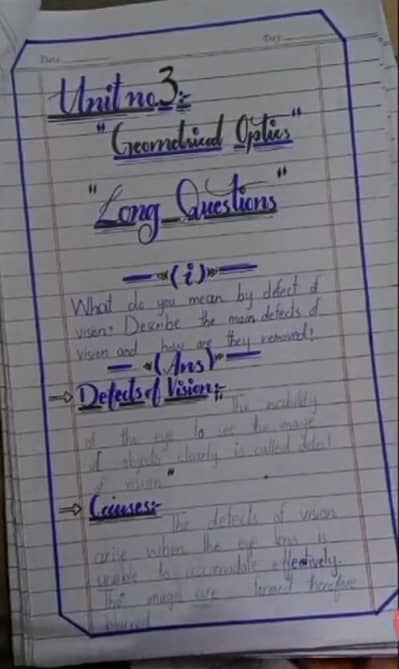 Date
Day
Unit no 3:-
"Geometrical Optics"
"Long Questions"
(i)
What do you mean by defect of
vision? Describe the main defects of
vision and how are they removed?
(Ans)
⇒ Defects of Vision:-
The inability
of the eye to see the image
of objects clearly is called defect
of vision"
⇒ Causes:-
The defects of vision
arise when the eye lens is
unable to accomodate effectively.
The image are formed therefore
blurred